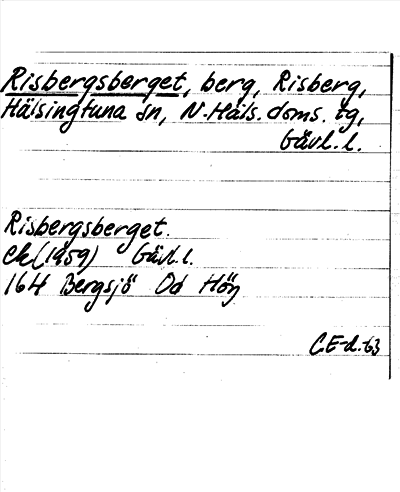 Risbergsberget, berg, Risberg,
Hälsingtuna sn, N. Häls. doms. tg,
Gävl. l.
Risbergsberget.
ek (1959) Gävl. l.
164 Bergsjö Öd Hög
C.E-d. -63